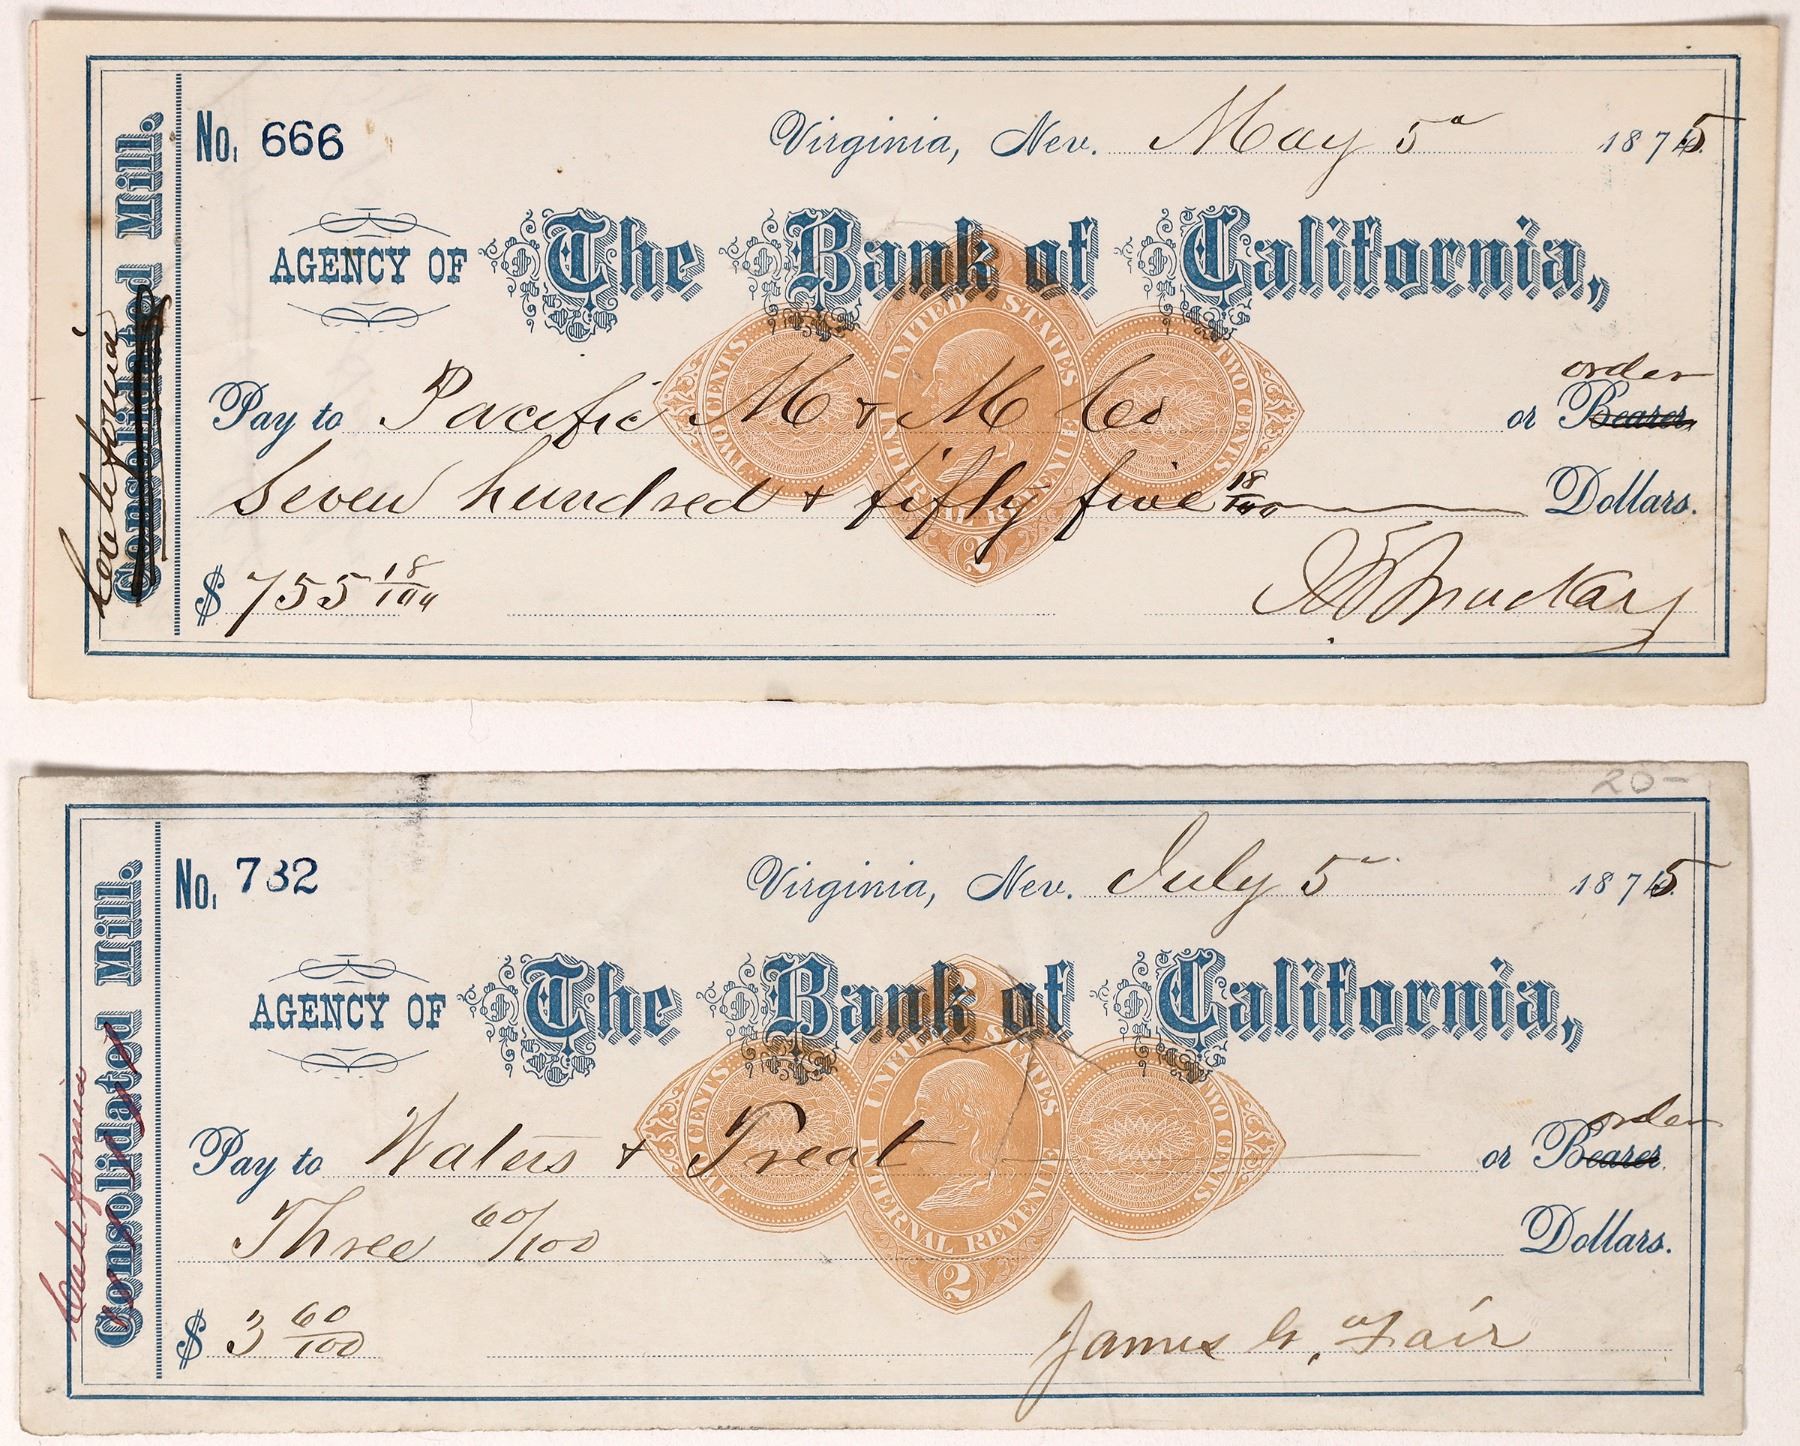 No. 666
Virginia, Nev. May 5" 1875
AGENCY OF The Bank of California,
Pay to Pacific M & M Co or Bearer order
Seven hundred & fifty five 18/100 Dollars.
$ 755 18/100
J W Mackay
Consolidated Mill.
California
TWO CENTS UNITED STATES TWO CENTS
INTERNAL REVENUE
2
20-
No. 732
Virginia, Nev. July 5" 1875
AGENCY OF The Bank of California,
Pay to Waters & Treat or Bearer order
Three 60/100 Dollars.
$ 3 60/100
James G. Fair
Consolidated Mill.
California
2
TWO CENTS UNITED STATES TWO CENTS
INTERNAL REVENUE
2